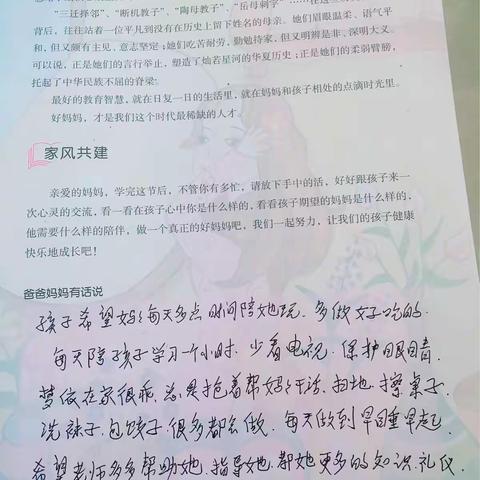 “三迁择邻”“断机教子”“陶母教子”“岳母刺字”
背后，往往站着一位平凡到没有在历史上留下姓名的母亲。她们眉眼温柔、语气平
和，但又颇有主见，意志坚定；她们吃苦耐劳，勤勉持家，但又明辨是非、深明大义。
可以说，正是她们的言行举止，塑造了灿若星河的华夏历史；正是她们的柔弱臂膀，
托起了中华民族不屈的脊梁。
最好的教育智慧，就在日复一日的生活里，就在妈妈和孩子相处的点滴时光里。
好妈妈，才是我们这个时代最稀缺的人才。
家风共建
亲爱的妈妈，学完这节后，不管你有多忙，请放下手中的活，好好跟孩子来一
次心灵的交流，看一看在孩子心中你是什么样的，看看孩子期望的妈妈是什么样的，
他需要什么样的陪伴，做一个真正的好妈妈吧，我们一起努力，让我们的孩子健康
快乐地成长吧！
爸爸妈妈有话说
孩子希望妈妈每天多点时间陪她玩.多做好吃的.
每天陪孩子学习一个小时.少看电视.保护眼睛.
梦依在家很乖.总是抱着帮妈妈干活.扫地.擦桌子.
洗袜子.包饺子.很多都会做.每天做到早睡早起.
希望老师多多帮助她.指导她.教她更多的知识.礼仪.